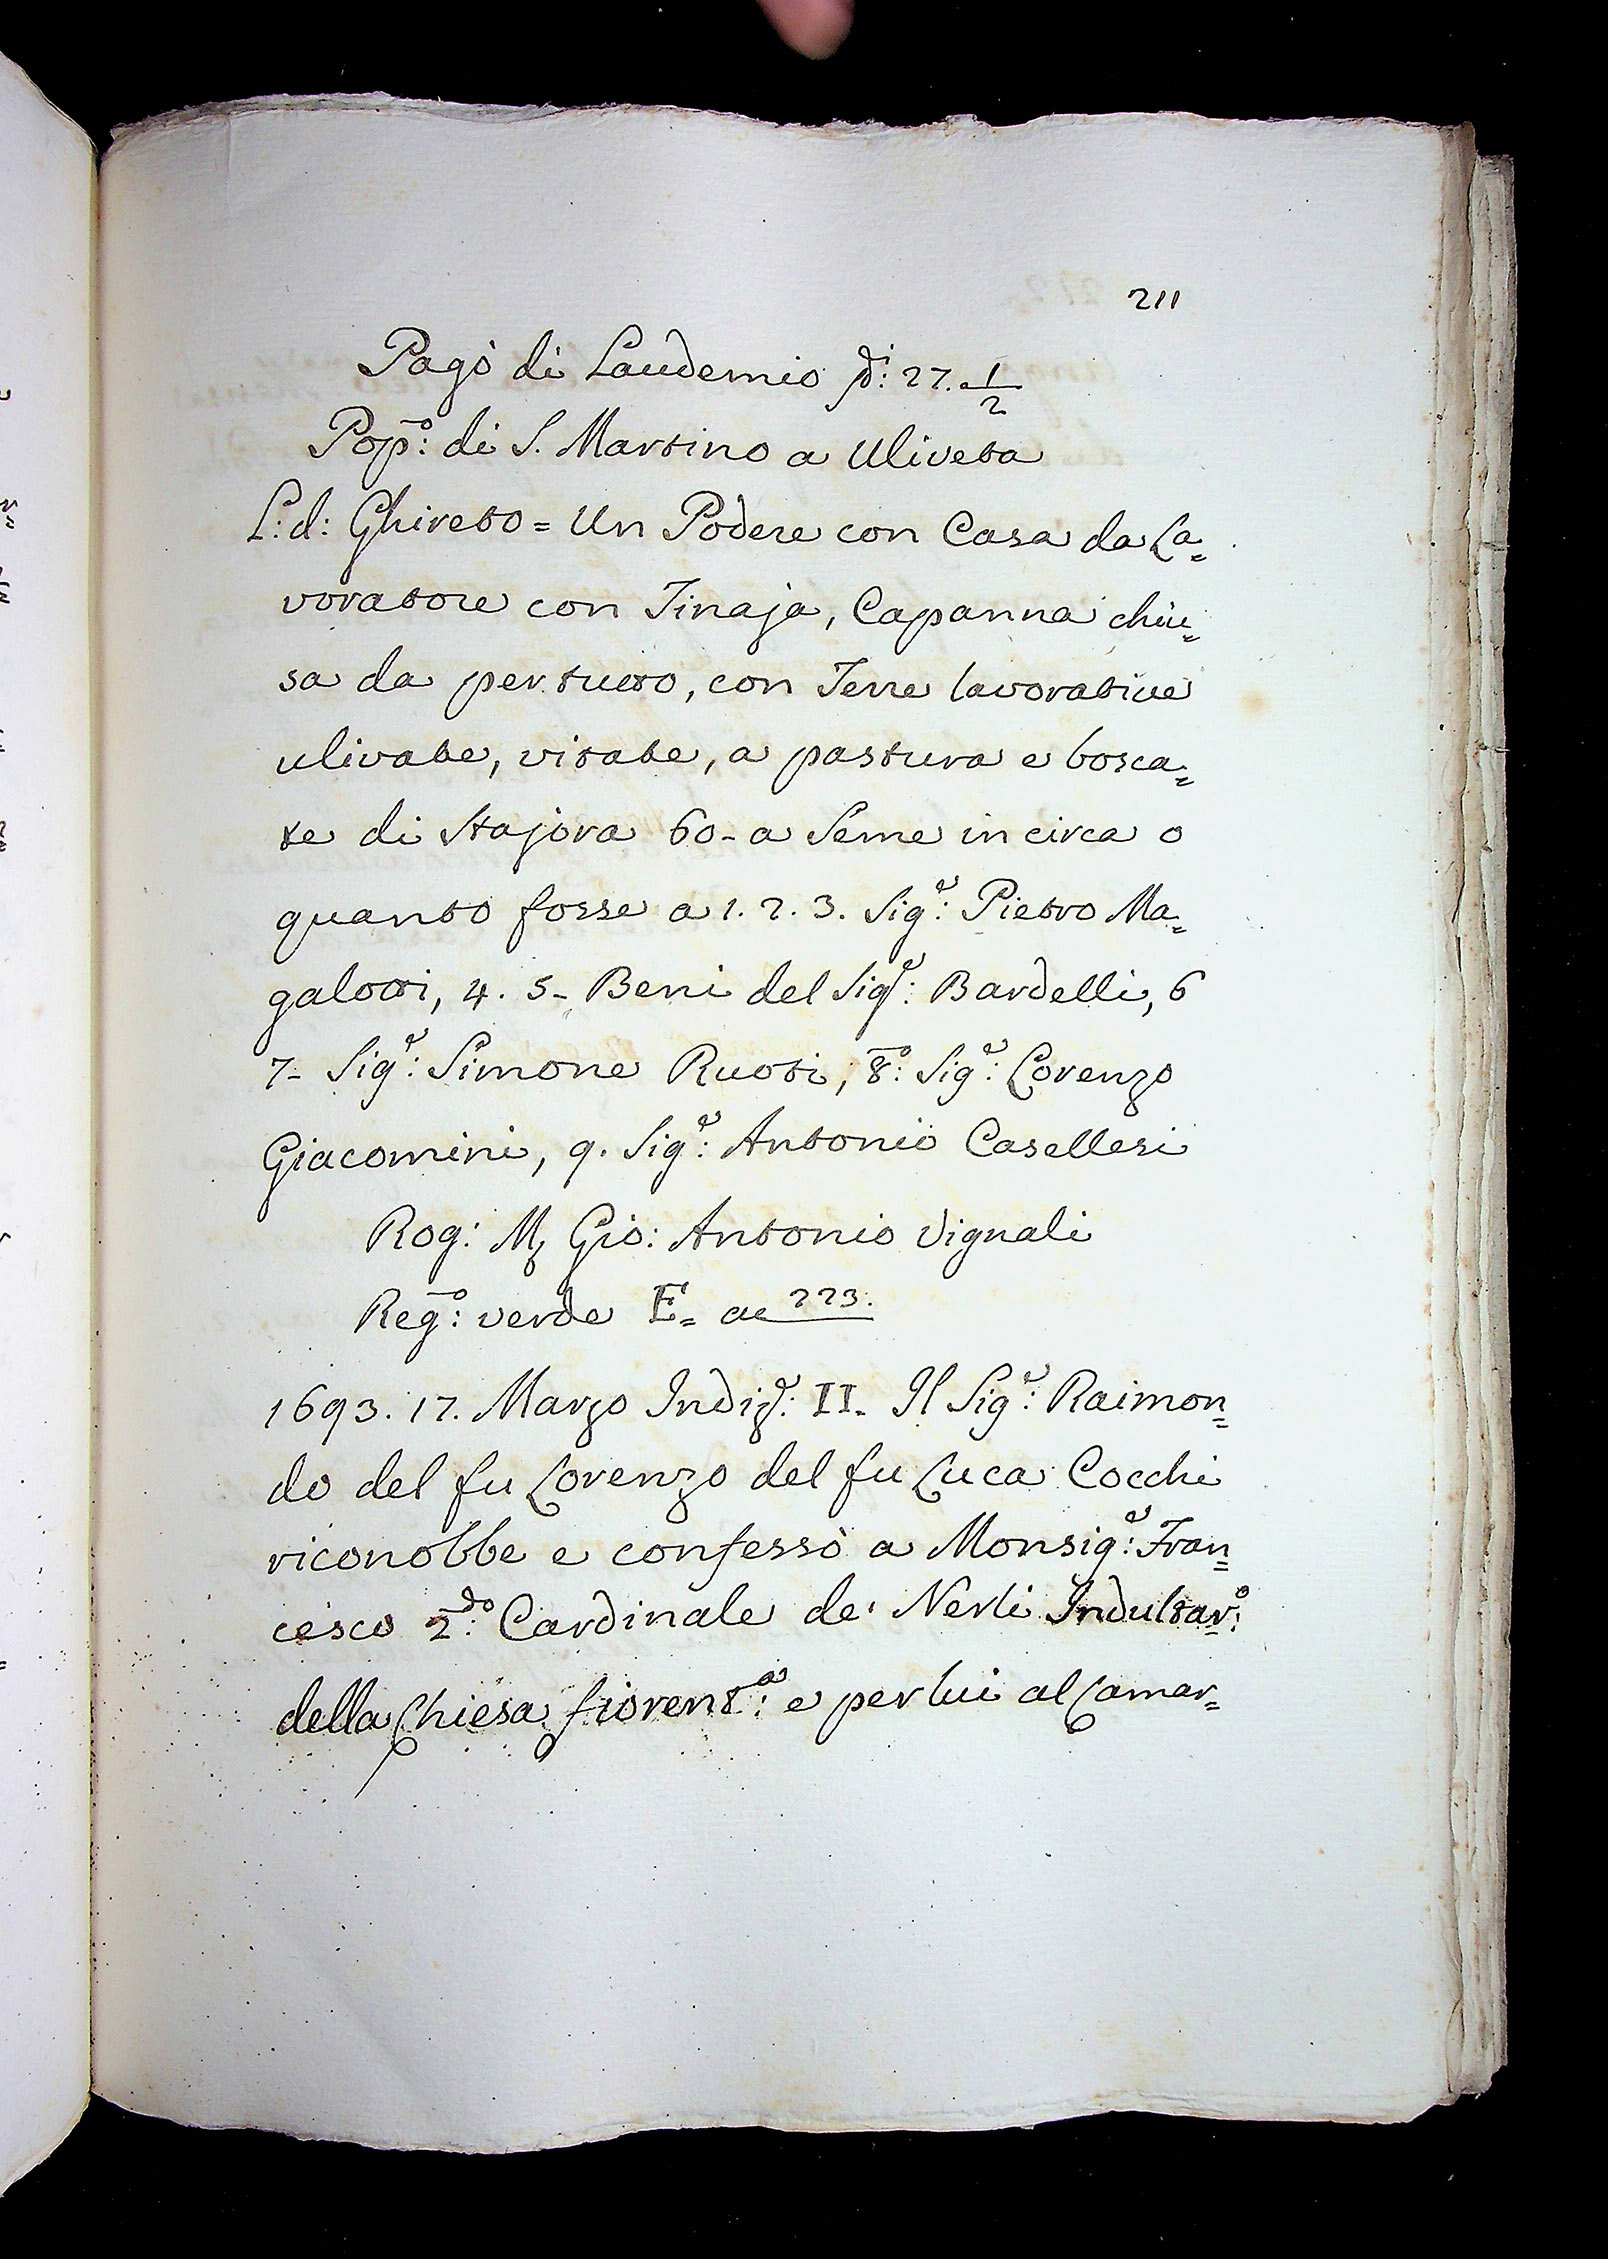 211
Pagò di Laudemio ∫di: 27. 1/2
Popo: di S. Martino a Uliveta
L: d: Ghireto = Un Podere con Casa da La=
voratore con Tinaja, Capanna chiu=
sa da per tutto, con Terre lavorative
ulivate, vitate, a pastura e bosca=
te di Stajora 60 - a Seme in circa o
quanto fosse a 1. 2. 3. Sigr: Pietro Ma=
galotti, 4. 5 - Beni del Sigr: Bardelli, 6
7 - Sigr: Simone Ruoti, 8o: Sigr: Lorenzo
Giacomini, 9. Sigr: Antonio Casellesi
Rog: M, Gio: Antonio Vignali
Rego: verde E= ac 223.
1693. 17. Marzo Indize: II. Il Sigr: Raimon=
do del fu Lorenzo del fu Luca Cocchi
riconobbe e confessò a Monsigr: Fran=
cesco 2do: Cardinale de' Nerli Indultaro:
della Chiesa fiorenta: e per lui al Camar=